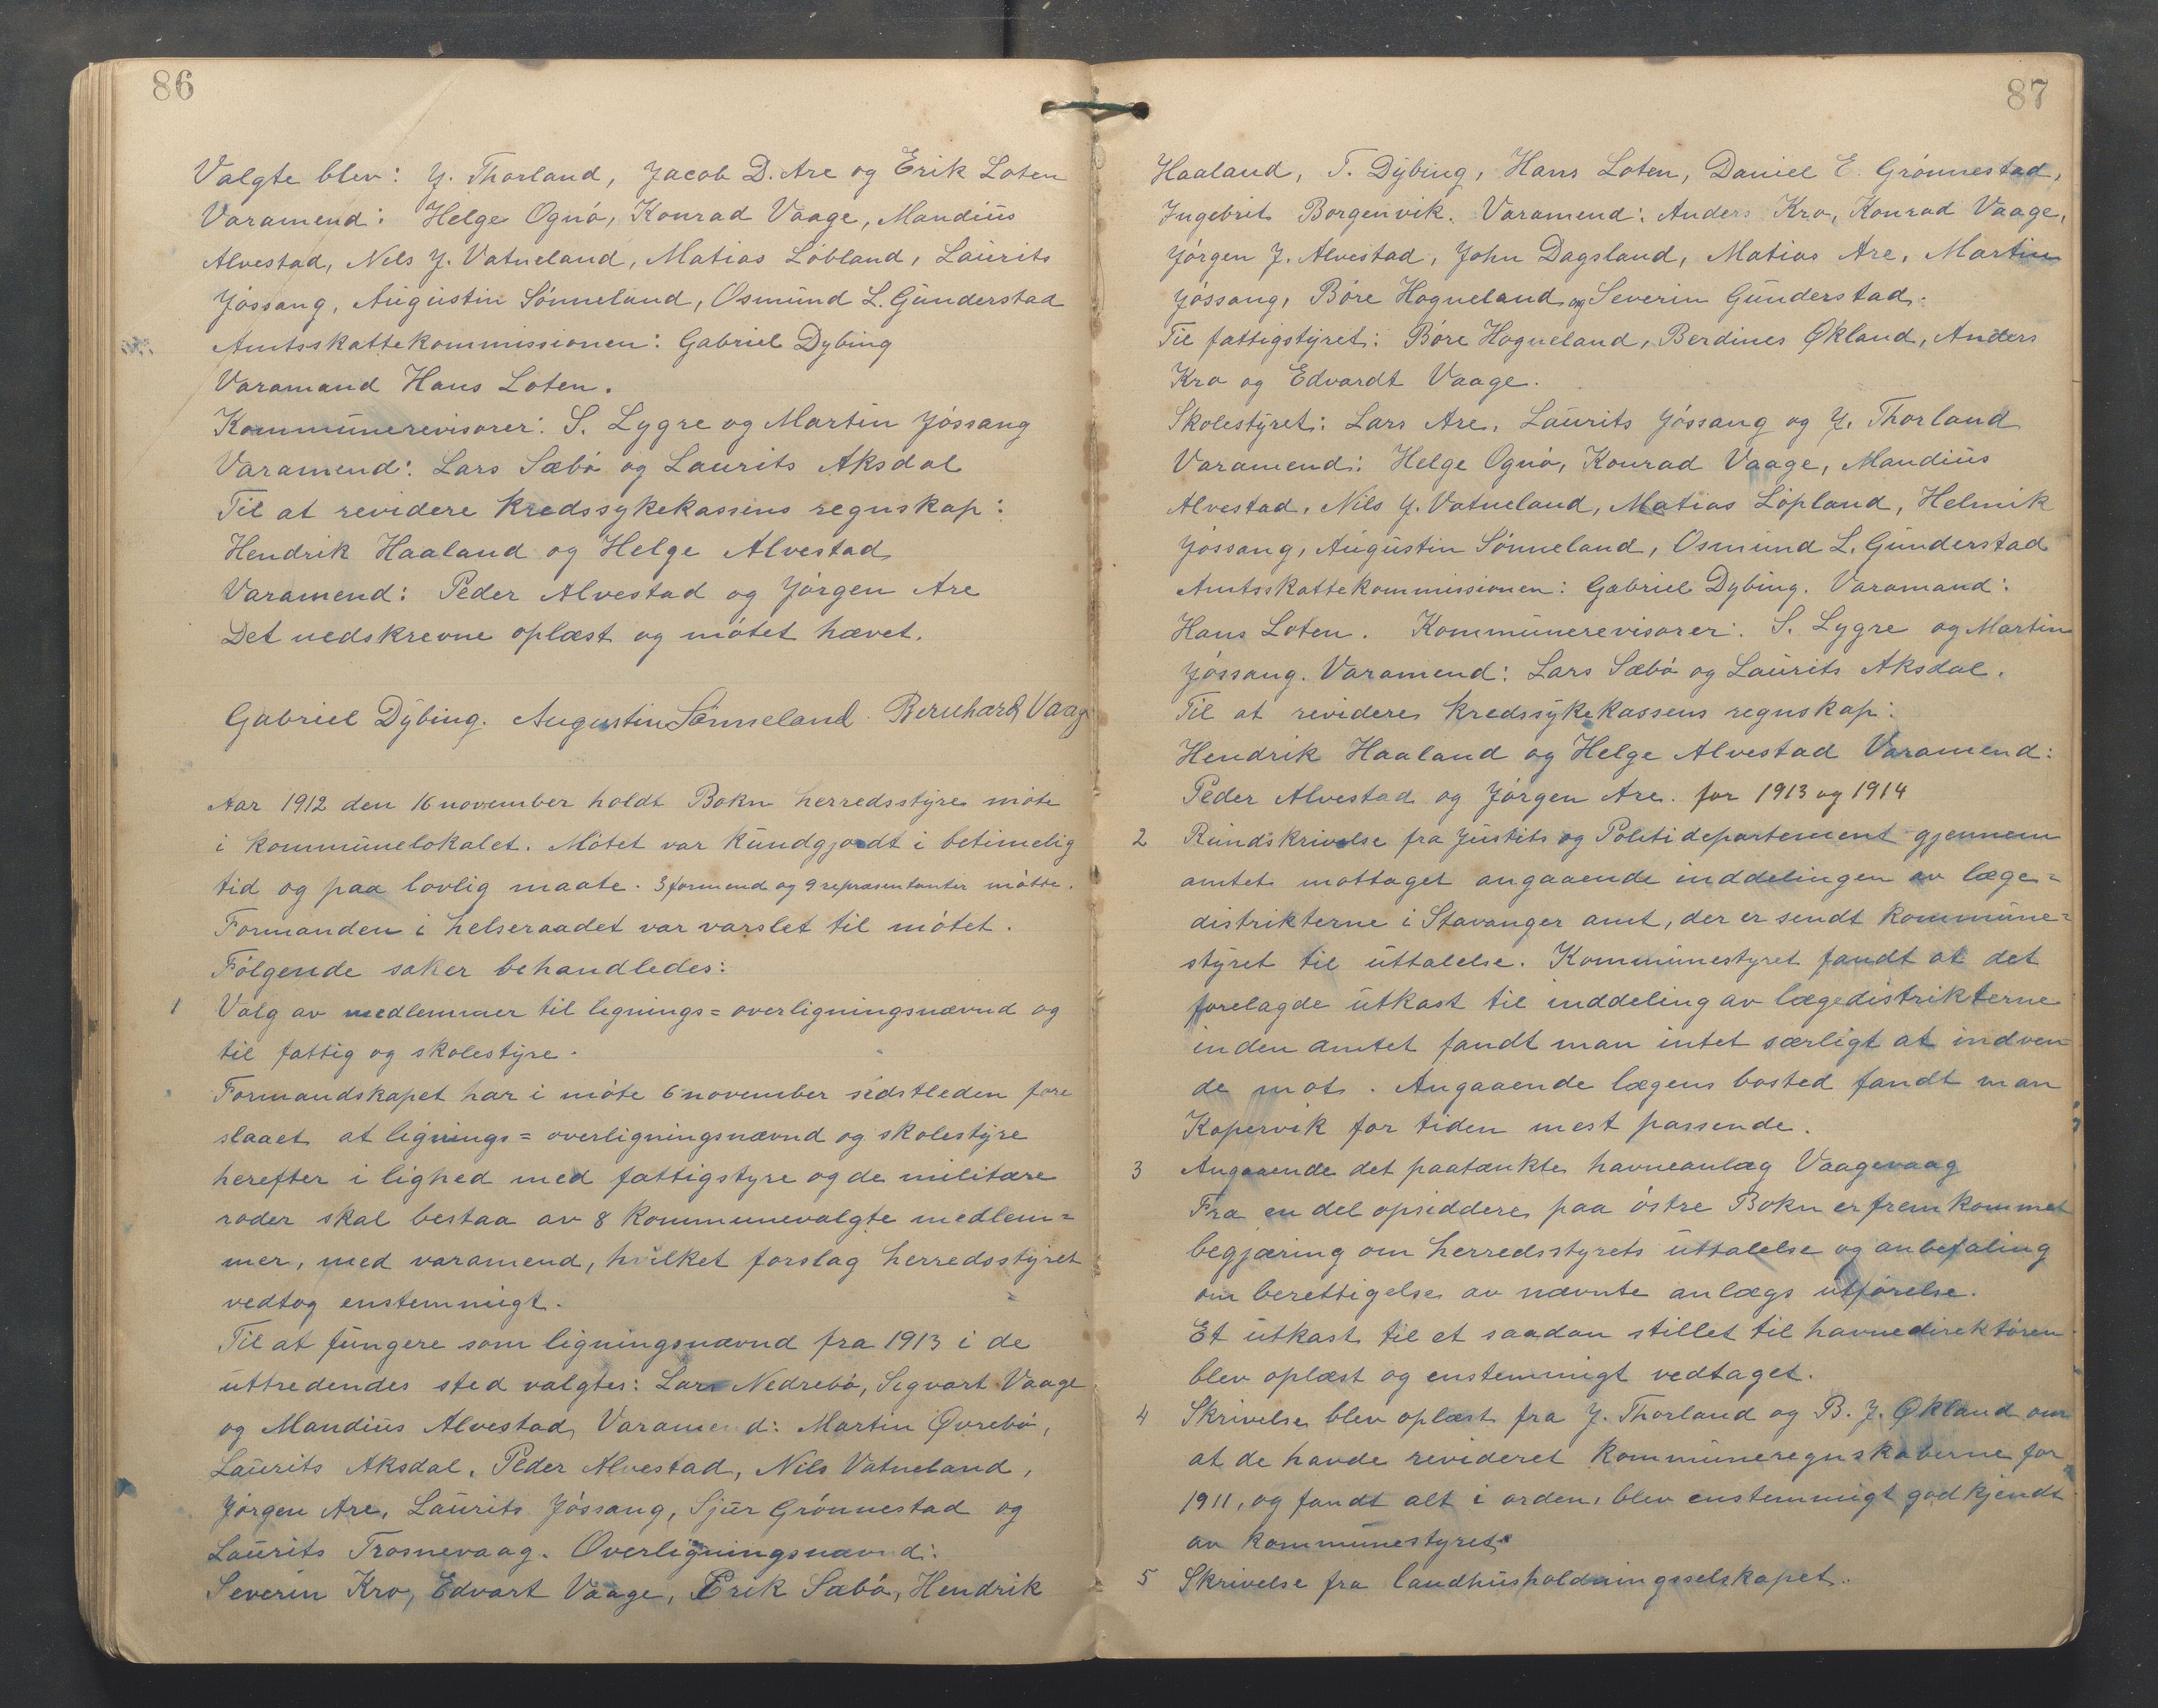 86
Valgte blev: J. Thorland, Jacob D. Are og Erik Loten
Varamend: Helge Ognö, Konrad Vaage, Mandius
Alvestad, Nils J. Vatneland, Matias Löbland, Laurits
Jössang, Augustin Sönneland, Osmund L. Gunderstad
Amtsskattekommissionen: Gabriel Dybing
Varamand Hans Loten.
Kommunerevisorer: S. Lygre og Martin Jössang
Varamend: Lars Sæbö og Laurits Aksdal
Til at revidere kredssykekassens regnskap:
Hendrik Haaland og Helge Alvestad
Varamend: Peder Alvestad og Jörgen Are
Det nedskrevne oplæst og mötet hævet.
Gabriel Dybing. Augustin Sønneland. Bernhard Vaag
Aar 1912 den 16 november holdt Bokn herredsstyre möte
i kommunelokalet. Mötet var kundgjordt i betimelig
tid og paa lovlig maate. 3 formend og 9 repræsentanter mötte.
Formanden i helseraadet var varslet til mötet.
Fölgende saker behandledes:
1 Valg av medlemmer til lignings= overligningsnævnd og
til fattig og skolestyre.
Formandskapet har i möte 6 november sidstleden fore
slaaet at lignings= overligningsnævnd og skolestyre
herefter i lighed med fattigstyre og de militære
roder skal bestaa av 8 kommunevalgte medlem=
mer, med varamend, hvilket forslag herredsstyret
vedtog enstemmigt.
Til at fungere som ligningsnævnd fra 1913 i de
uttredendes sted valgtes: Lars Nedrebö, Segvart Vaage
og Mandius Alvestad, Varamend: Martin Øvrebö,
Laurits Aksdal, Peder Alvestad, Nils Vatneland,
Jörgen Are, Laurits Jössang, Sjur Grönnestad og
Laurits Trosnevaag. Overligningsnævnd:
Severin Kro, Edvart Vaage, Erik Sæbö, Hendrik
87
Haaland, T. Dybing, Hans Loten, Daniel E. Grönnestad,
Ingebrit Borgenvik. Varamend: Anders Kro, Konrad Vaage,
Jörgen J. Alvestad, John Dagsland, Matias Are, Martin
Jössang, Böre Hogneland og Severin Gunderstad.
Til fattigstyret: Böre Hogneland, Berdines Økland, Anders
Kro og Edvardt Vaage.
Skolestyret: Lars Are, Laurits Jössang og J. Thorland
Varamend: Helge Ognö, Konrad Vaage, Mandius
Alvestad, Nils J. Vatneland, Matias Löpland, Helmik
Jössang, Augustin Sönneland, Osmund L. Gunderstad
Amtsskattekommissionen: Gabriel Dybing. Varamand:
Hans Loten. Kommunerevisorer: S. Lygre og Martin
Jössang. Varamend: Lars Sæbö og Laurits Aksdal.
Til at revidere kredssykekassens regnskap:
Hendrik Haaland og Helge Alvestad Varamend:
Peder Alvestad og Jörgen Are. for 1913 og 1914
2 Rundskrivelse fra Justits og Politidepartement gjennem
amtet mottaget angaaende inddelingen av læge=
distrikterne i Stavanger amt, der er sendt kommune=
styret til uttalelse. Kommunestyret fandt at det
forelagde utkast til inddeling av lægedistrikterne
inden amtet fandt man intet særligt at indven
de mot. Angaaende lægens bosted fandt man
Kopervik for tiden mest passende.
3 Angaaende det paatænkte havneanlæg Vaagevaag
Fra en del opsiddere paa östre Bokn er frem kommet
begjæring om herredsstyrets uttalelse og anbefaling
om berettigelse av nævnte anlægs utförelse.
Et utkast til et saadan stillet til havnedirektören
blev oplæst og enstemmigt vedtaget.
4 Skrivelse blev oplæst fra J. Thorland og B. J. Økland om
at de havde revideret kommuneregnskaberne for
1911, og fandt alt i orden, blev enstemmigt godkjendt
av kommunestyret.
5 Skrivelse fra landhusholdningsselskapet.